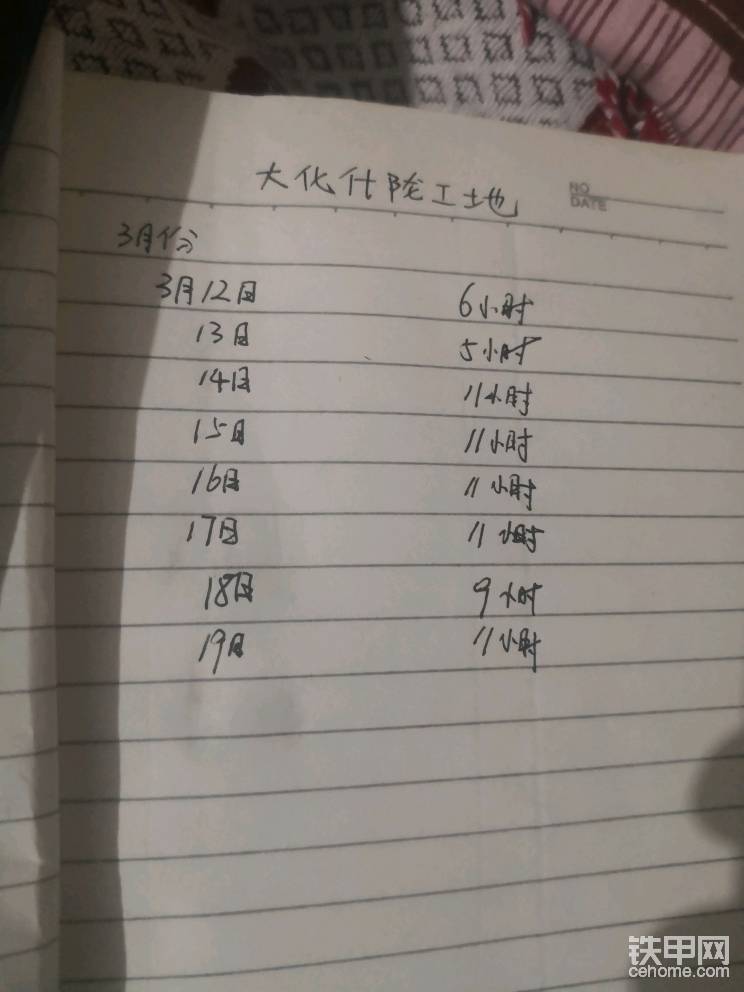 大化什陇工地
NO
DATE
3月份
3月12日 6小时
13日 5小时
14日 11小时
15日 11小时
16日 11小时
17日 11小时
18日 9小时
19日 11小时
铁甲网
cehome.com